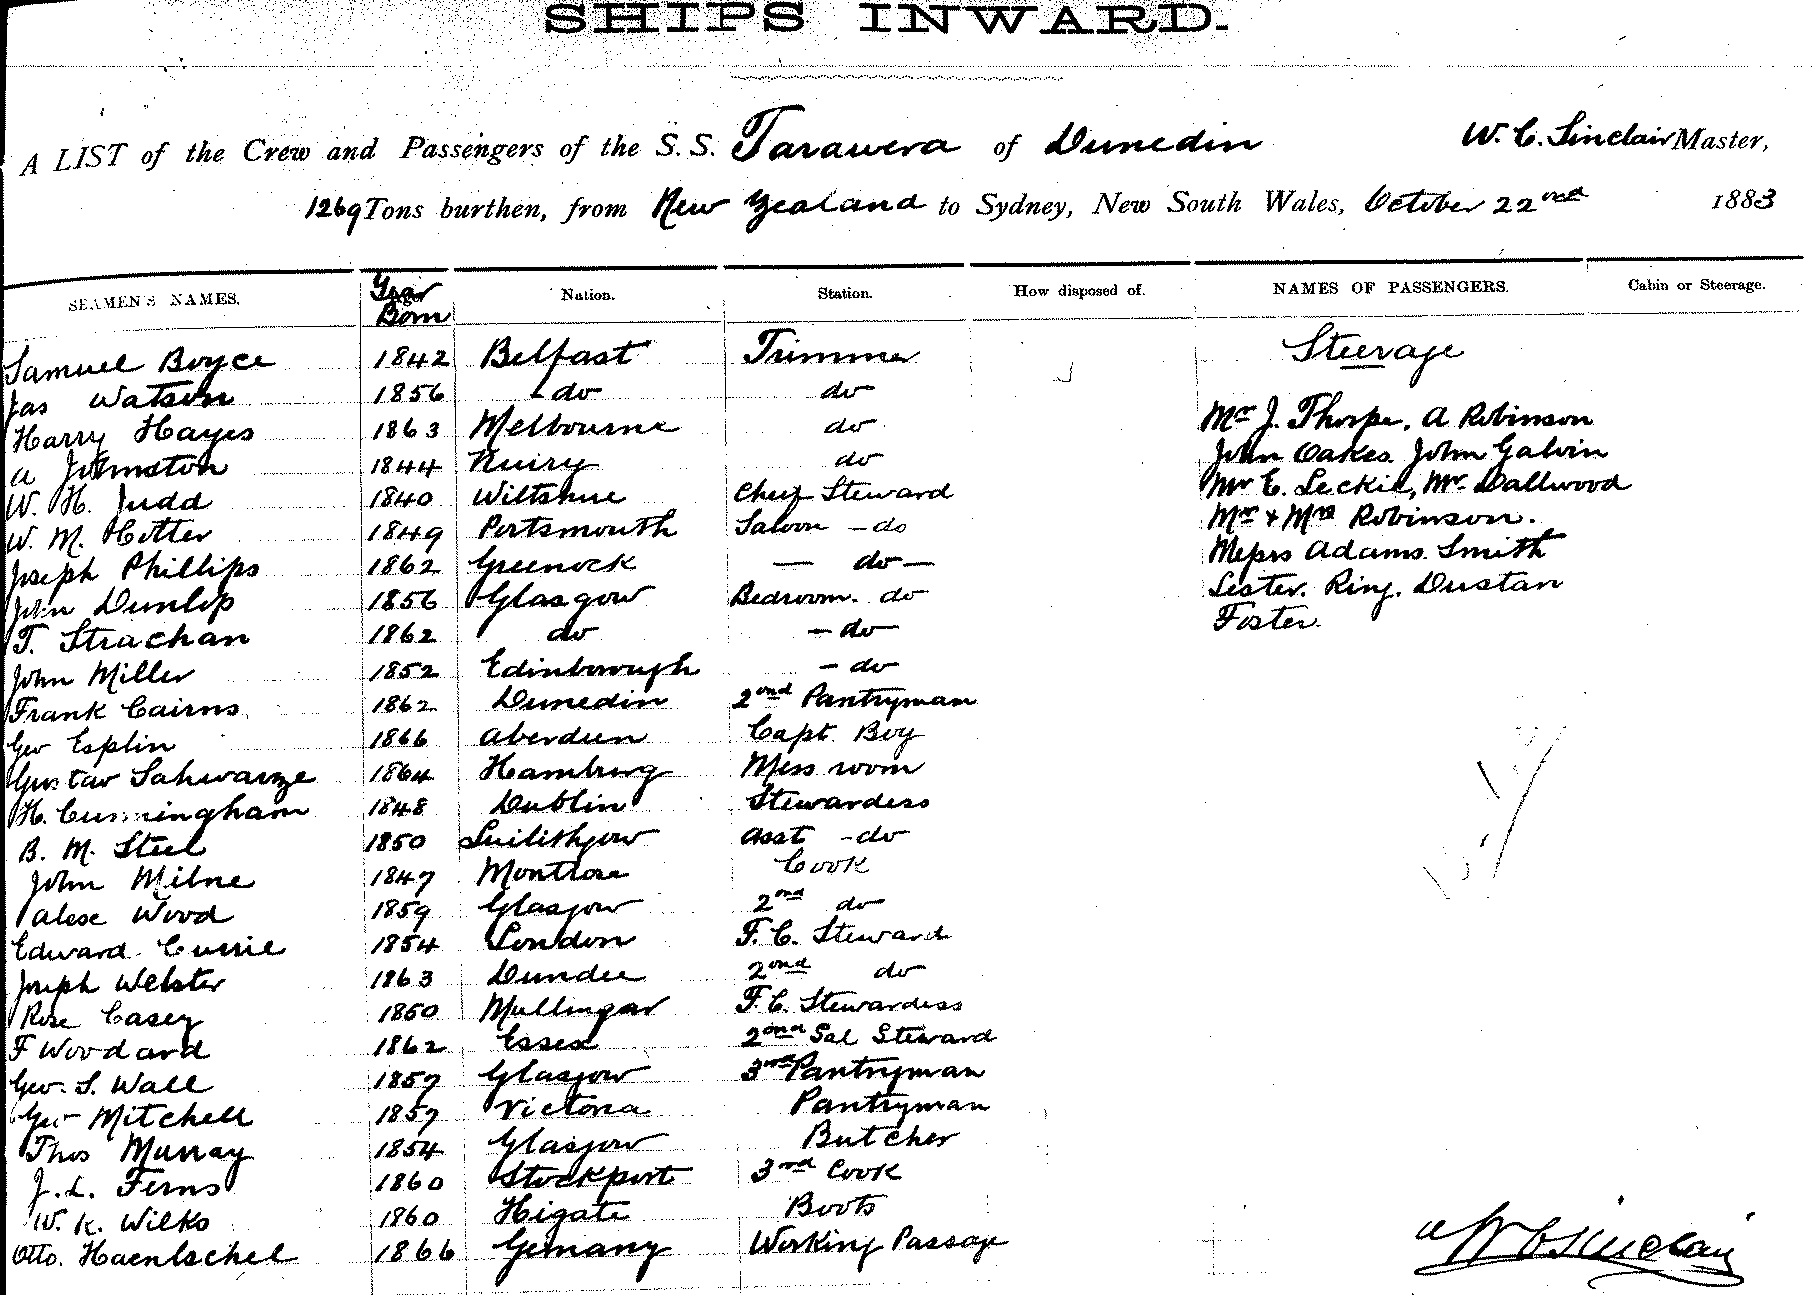 SHIPS INWARD.
A LIST of the Crew and Passengers of the S.S. Tarawera of Dunedin W. C. Sinclair Master,
1269 Tons burthen, from New Zealand to Sydney, New South Wales, October 22ond 1883
SEAMEN'S NAMES. Year Born Nation. Station. How disposed of. NAMES OF PASSENGERS. Cabin or Steerage.
Samuel Boyce 1842 Belfast Trimmer Steerage
Jas Watson 1856 do do
Harry Hayes 1863 Melbourne do Mr J. Thorpe, A Robinson
A Johnston 1844 do John Oakes. John Galvin
W. H. Judd 1840 Wiltshire Chief Steward Mr E. Leckie, Mr Dallwood
W. M. Hetter 1849 Portsmouth Saloon - do Mr + Mrs Robinson.
Joseph Phillips 1862 Greenock — do — Messrs Adams. Smith
John Dunlop 1856 Glasgow Bedroom. do Lester. Ring. Dustan
T. Strachan 1862 do - do Foster.
John Miller 1852 Edinborough - do
Frank Cairns 1862 Dunedin 2ond Pantryman
Geo Esplin 1866 Aberdeen Capt Boy
Gustav Sahwarze 1864 Hamburg Mess room
H. Cunningham 1848 Dublin Stewardess
B. M. Steel 1850 Asst - do
John Milne 1847 Montrose Cook
Alexe Wood 1859 Glasgow 2ond do
Edward Currie 1854 London F. C. Steward
Joseph Webster 1863 Dundee 2ond do
Rose Casey 1850 Mullingar F. C. Stewardess
F Woodard 1862 Essex 2ond Sal Steward
Geo. S. Wall 1857 Glasgow 3rd Pantryman
Geo Mitchell 1857 Victoria Pantryman
Thos Murray 1854 Glasgow Butcher
J. L. Ferns 1860 Stockport 3rd Cook
W. K. Wilks 1860 Higate Boots
Otto. Haentschel 1866 Gemany Working Passage
W C Sinclair